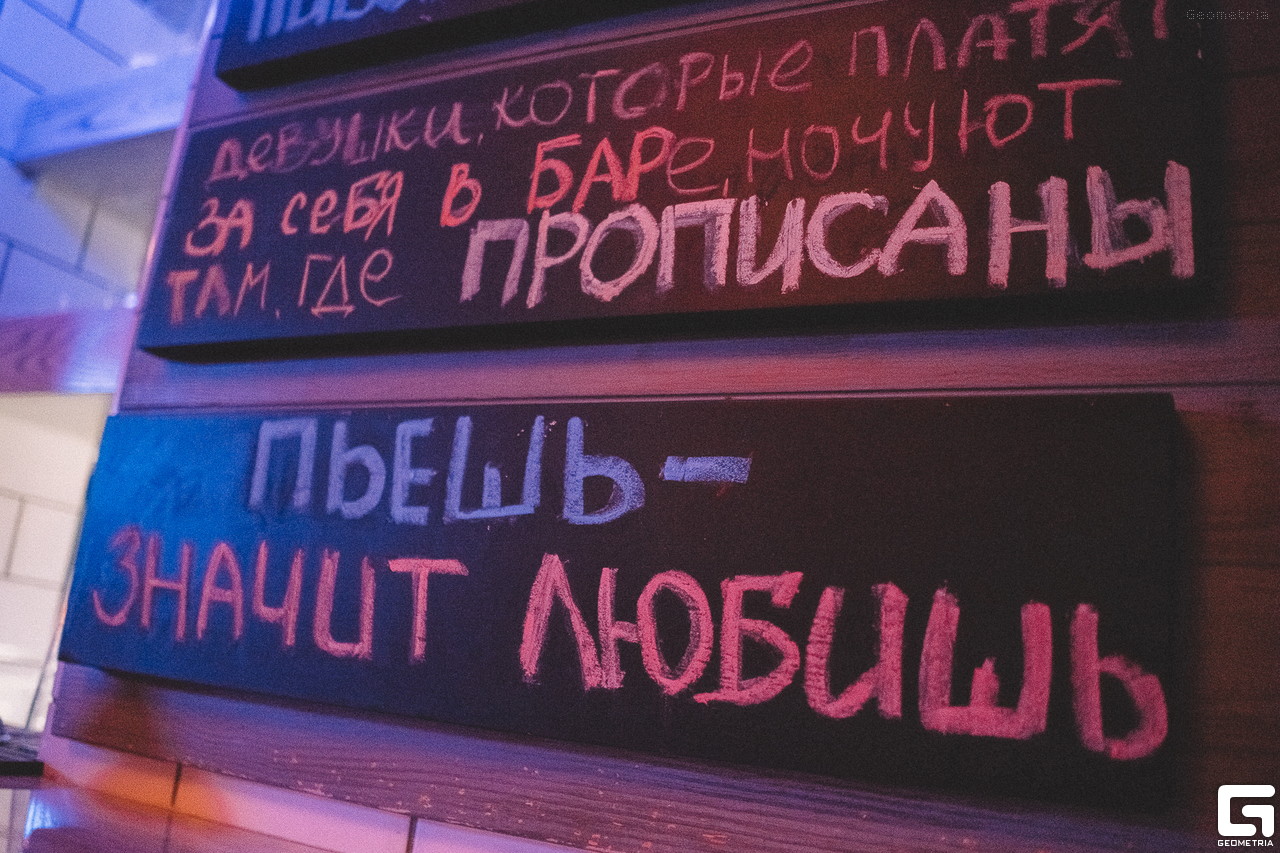 Geometria
ДЕВУШКИ, КОТОРЫЕ ПЛАТЯТ
ЗА СЕБЯ В БАРЕ, НОЧУЮТ
ТАМ, ГДЕ ПРОПИСАНЫ
ПЬЕШЬ -
ЗНАЧИТ ЛЮБИШЬ
GEOMETRIA